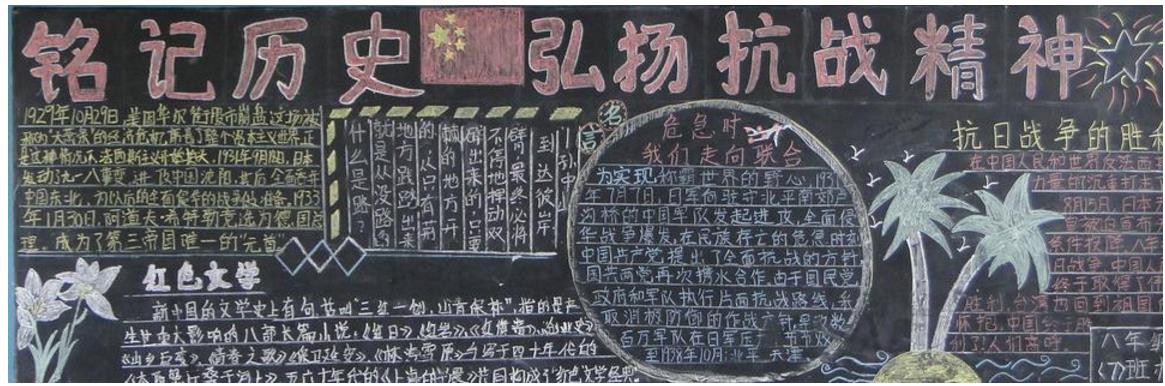 铭记历史 弘扬抗战精神
1929年10月29日,美国华尔街股市崩盘,这场被
称为"大萧条"的经济危机,席卷了整个资本主义世界,正
是这种情况下,法西斯主义开始壮大,1931年9月18日,日本
发动九一八事变,进攻中国沈阳,其后全面占
中国东北,为以后的全面侵华的战争做准备,1933
年1月30日,阿道夫·希特勒竞选为德国总
理,成为了第三帝国唯一的"元首"
什么是路?
就是从没路的
地方践踏出来
的,从只有荆
棘的地方开
辟出来的,只要
不停地挥动双
臂,最终必将
到达彼岸
名言
危急时
我们走向联合
为实现称霸世界的野心,1937
年7月7日,日军向驻守北平南郊卢
沟桥的中国军队发起进攻,全面侵
华战争爆发,在民族存亡的危急时刻
中国共产党,提出了全面抗战的方针
国共两党再次携水合作,由于国民党
政府和军队执行片面抗战路线,采
取消极防御的作战方针,导致数
百万军队在日军压力下节节败
至1938年10月:北平、天津
抗日战争的胜利
在中国人民和世界反法西斯
力量的沉重打击
8月15日,日本天
皇被迫宣布无
条件投降,八年
日战争,中国人
终于取得了伟
胜利,台湾也回到祖国
怀抱,中国
八年级
(7)班
红色文学
新中国的文学史上有句话叫"三红一创,山青保林"指的是产
生过重大影响的八部长篇小说:《红日》《红岩》《红旗谱》《创业史》
《山乡巨变》《青春之歌》《保卫延安》《林海雪原》与写于四十年代的
《太阳照在桑干河上》五六十年代的《上海的早晨》共同构成了"红色文学经典"